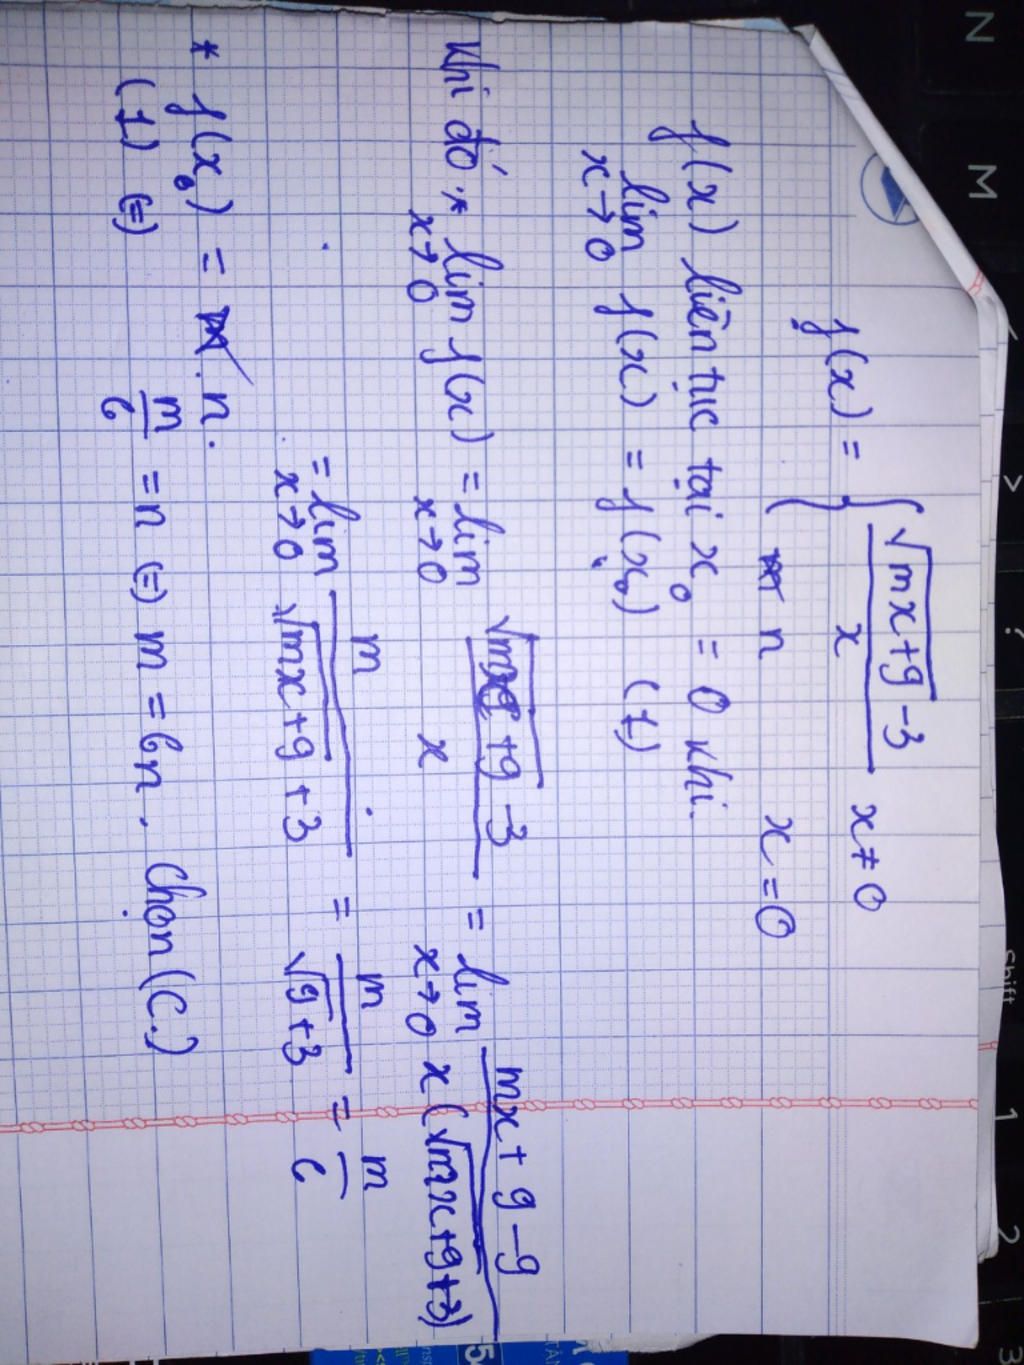 f(x) = { √mx+9 -3 / x x≠0
n x=0
f(x) liên tục tại x₀ = 0 khi.
lim x→0 f(x) = f(x₀) (1)
Khi đó, * lim x→0 f(x) = lim x→0 √mx+9 -3 / x = lim x→0 mx+9-9 / x(√mx+9+3)
= lim x→0 m / √mx+9+3 = m / √9+3 = m / 6
* f(x₀) = n.
(1) (=) m/6 = n (=) m = 6n. Chọn (C.)
N
M
>
?
Shift
1
2
3
5